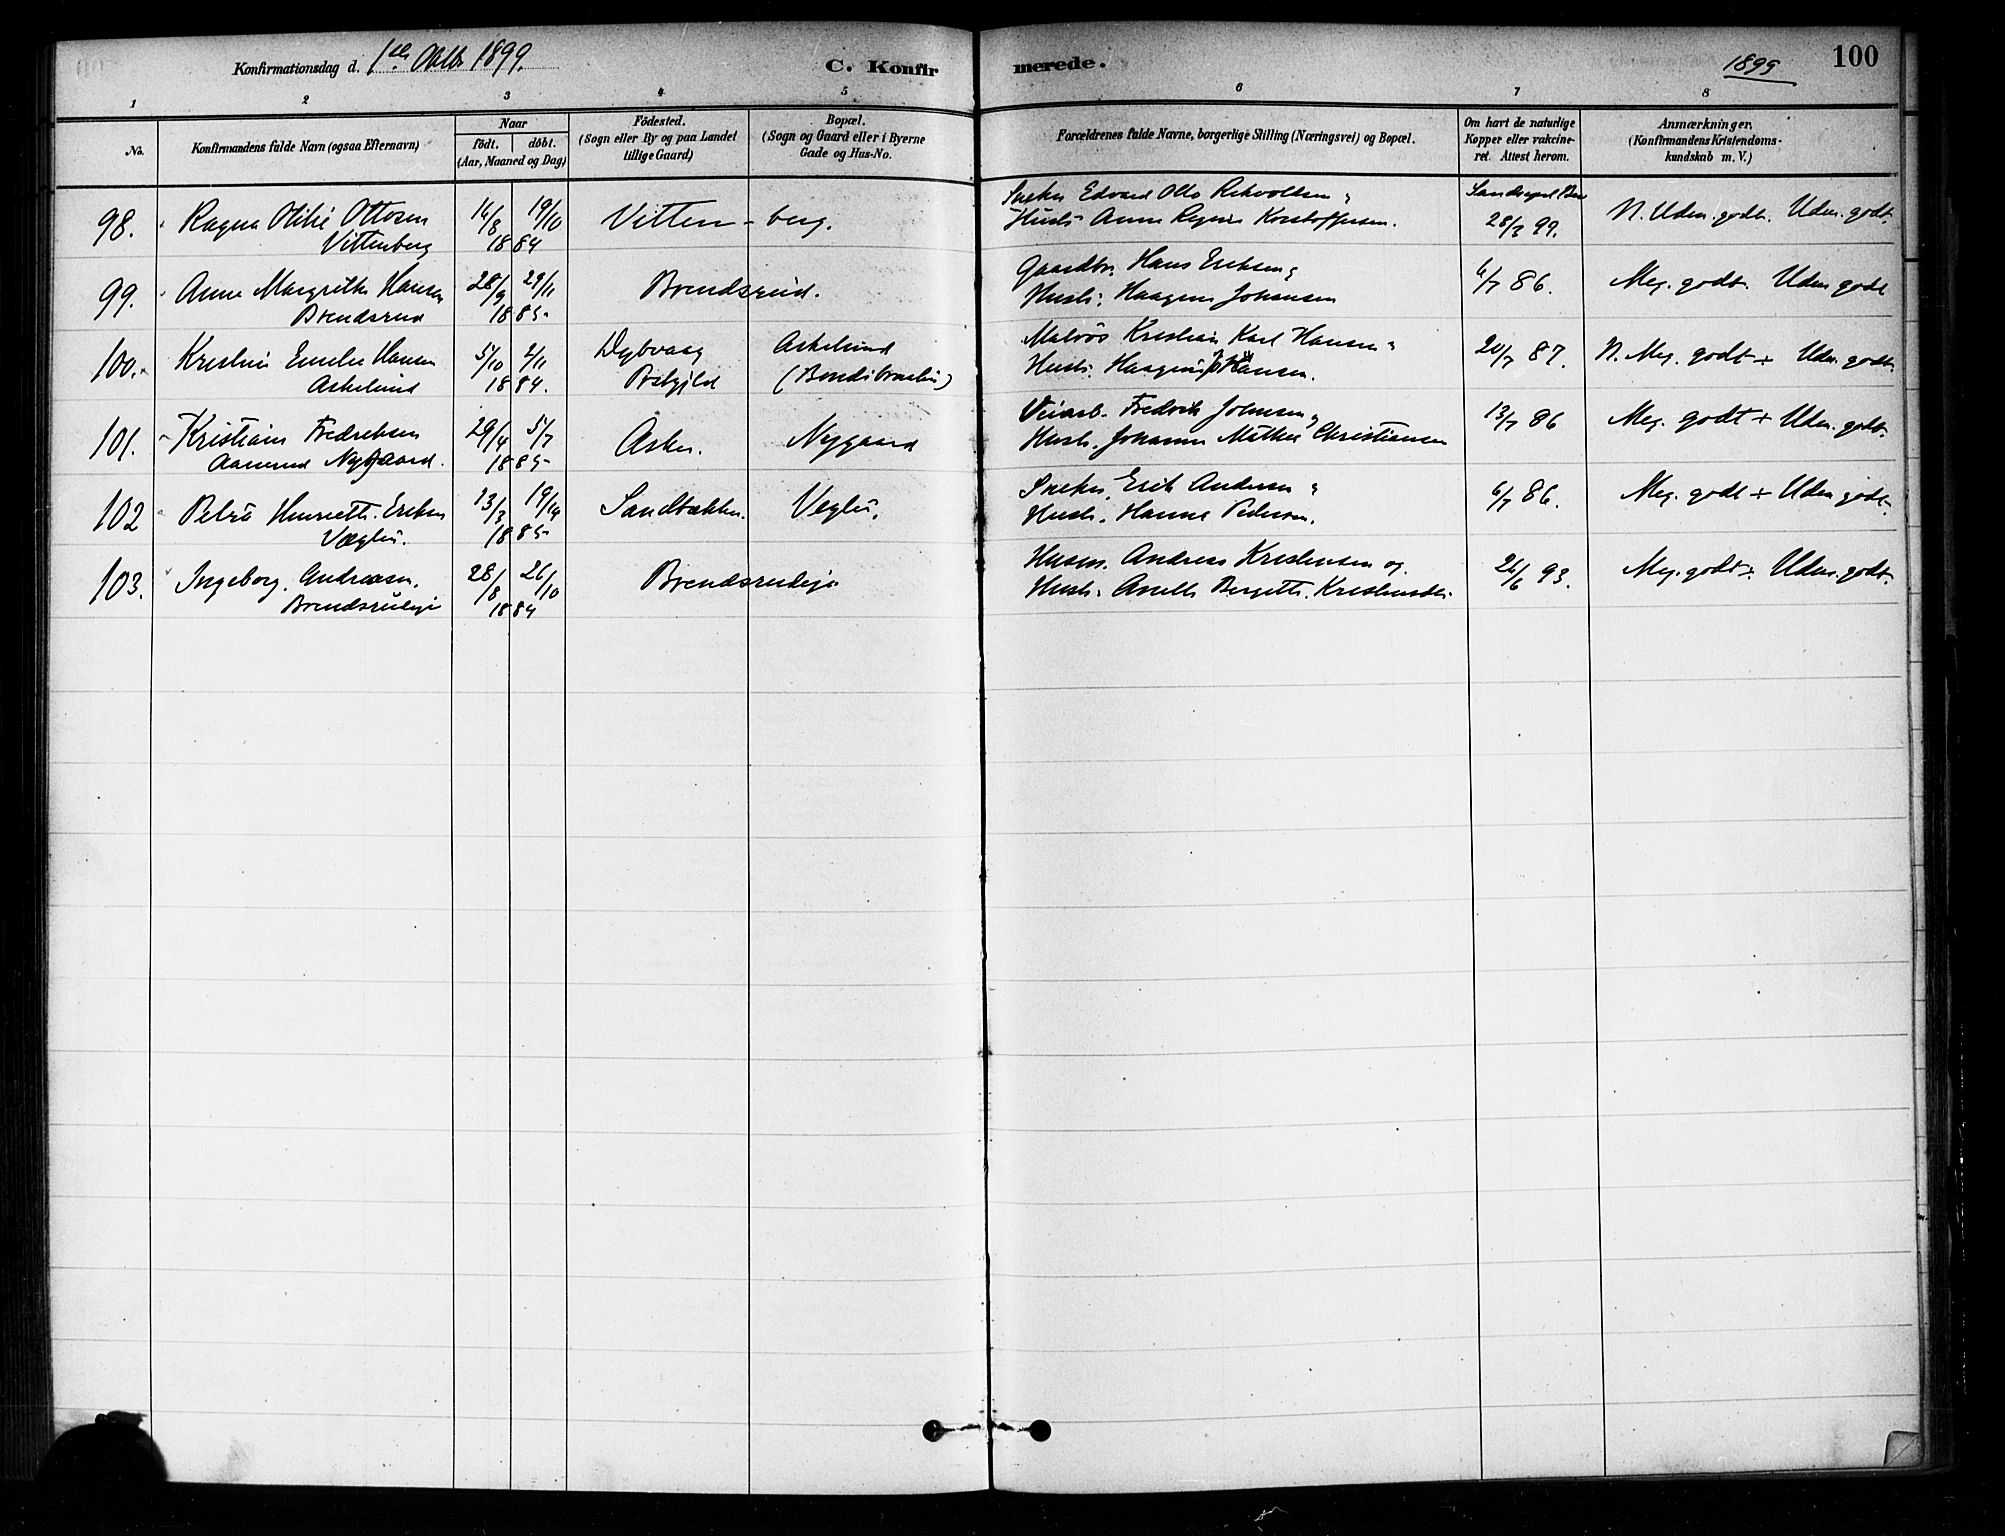 Konfirmationsdag d. 1ste Oktbr 1899.
C. Konfirmerede.
1899
100
1 2 3 4 5 6 7 8
No.
Konfirmandens fulde Navn (ogsaa Efternavn)
Naar
födt. döbt.
(Aar, Maaned og Dag)
Födested.
(Sogn eller By og paa Landet
tillige Gaard)
Bopæl.
(Sogn og Gaard eller i Byerne
Gade og Hus-No.
Forældrenes fulde Navne, borgerlige Stilling (Næringsvei) og Bopæl.
Om havt de naturlige
Kopper eller vakcine-
ret. Attest herom.
Anmærkninger.
(Konfirmandens Kristendoms-
kundskab m. V.)
98. Ragna Otilie Ottosen
Vittenberg
14/8 19/10
1884
Vitten - berg.
Snekker Edvard Otto
Hust. Anne Regine
28/3 99.
N. Uden. godt. Uden. godt.
99. Anne Margrethe Hansen
Brendsrud
28/9 29/11
1885
Brendsrud.
Gaardbr. Hans Eriksen
Hust. Haagine Johansen
6/7 86.
Meg. godt. Uden godt
100. Kristine Emelie Hansen
Askelund
5/10 2/11
1884.
Dybvaag
Askelund
Matrös Kristian Karl Hansen
Hust. Hansen.
20/7 87.
N. Meg. godt + Uden. godt.
101. Kristiane Fredriksen
Aamerud Nygaard.
29/4 5/7
1885
Asker. Nygaard
Veiarb. Fredrik Johnsen
Hust. Johanne Mathea Christiansen
13/7 86
Meg. godt + Uden. godt.
102 Petra Henriette Eriksen
Væglia.
13/3
1885
Sandbakken. Veglia.
Snekker Erik Andersen
Hust. Hanne Pedersen.
6/7 86.
Meg. godt + Uden godt.
103. Ingeborg Andreasen.
Brendsrudeje
28/8 26/10
1884
Brendsrudeje
Husm. Andreas Kristensen og
Hust. Anette Bergitte
26/6 93.
Meg. godt + Uden. godt.